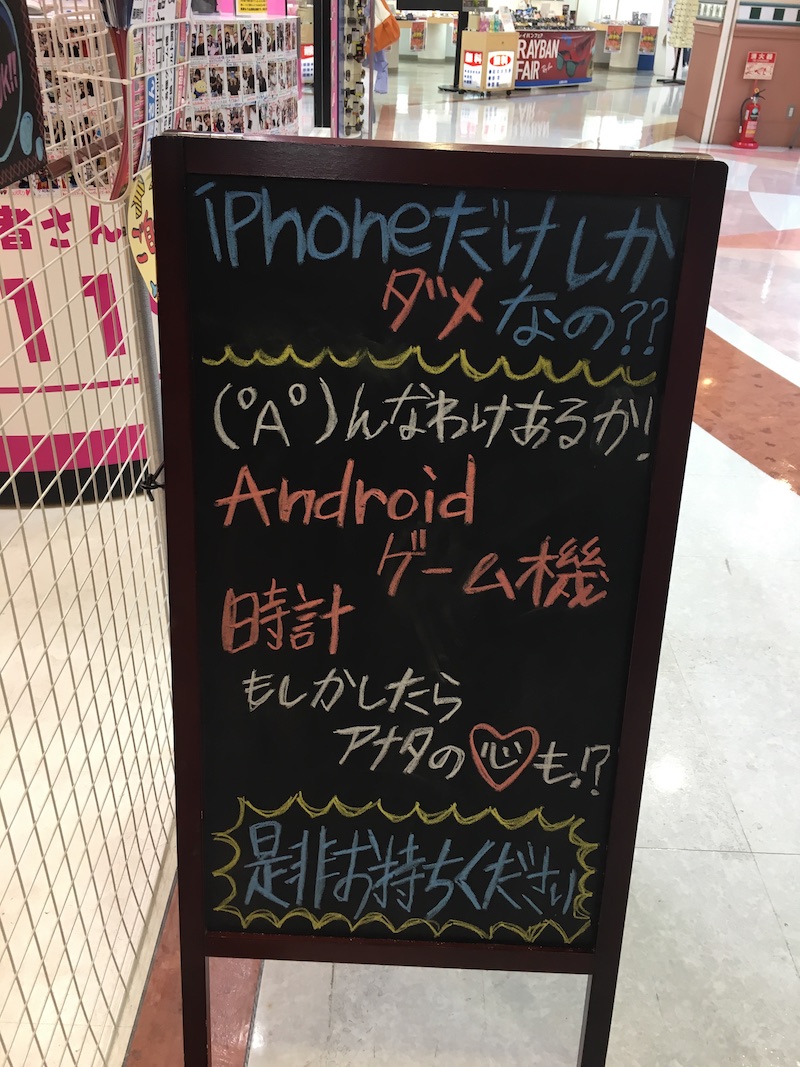 iPhoneだけしか
ダメなの??
(°A°)んなわけあるか!
Android
ゲーム機
時計
もしかしたら
アナタの心も!?
是非お持ちください
者さん
11
RAYBAN
FAIR
消火器